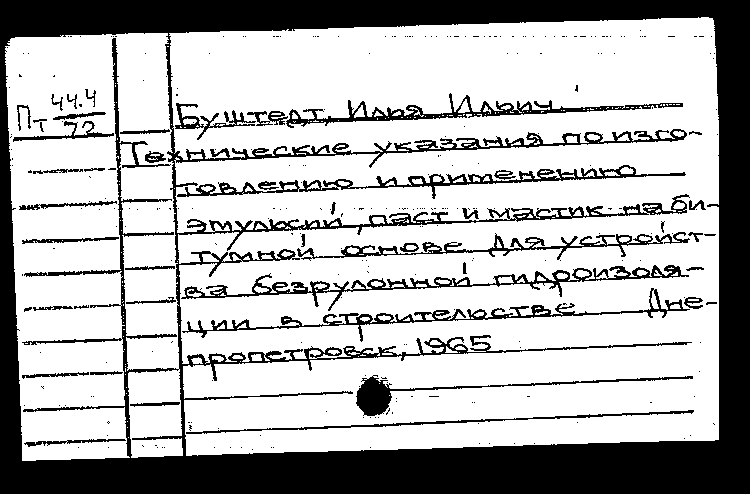 Пт 44.4
72
Буштедт, Илья Ильич.
Технические указания по изго-
товлению и применению
эмульсий, паст и мастик на би-
тумной основе для устройст-
ва безрулонной гидроизоля-
ции в строительстве. Дне-
пропетровск, 1965